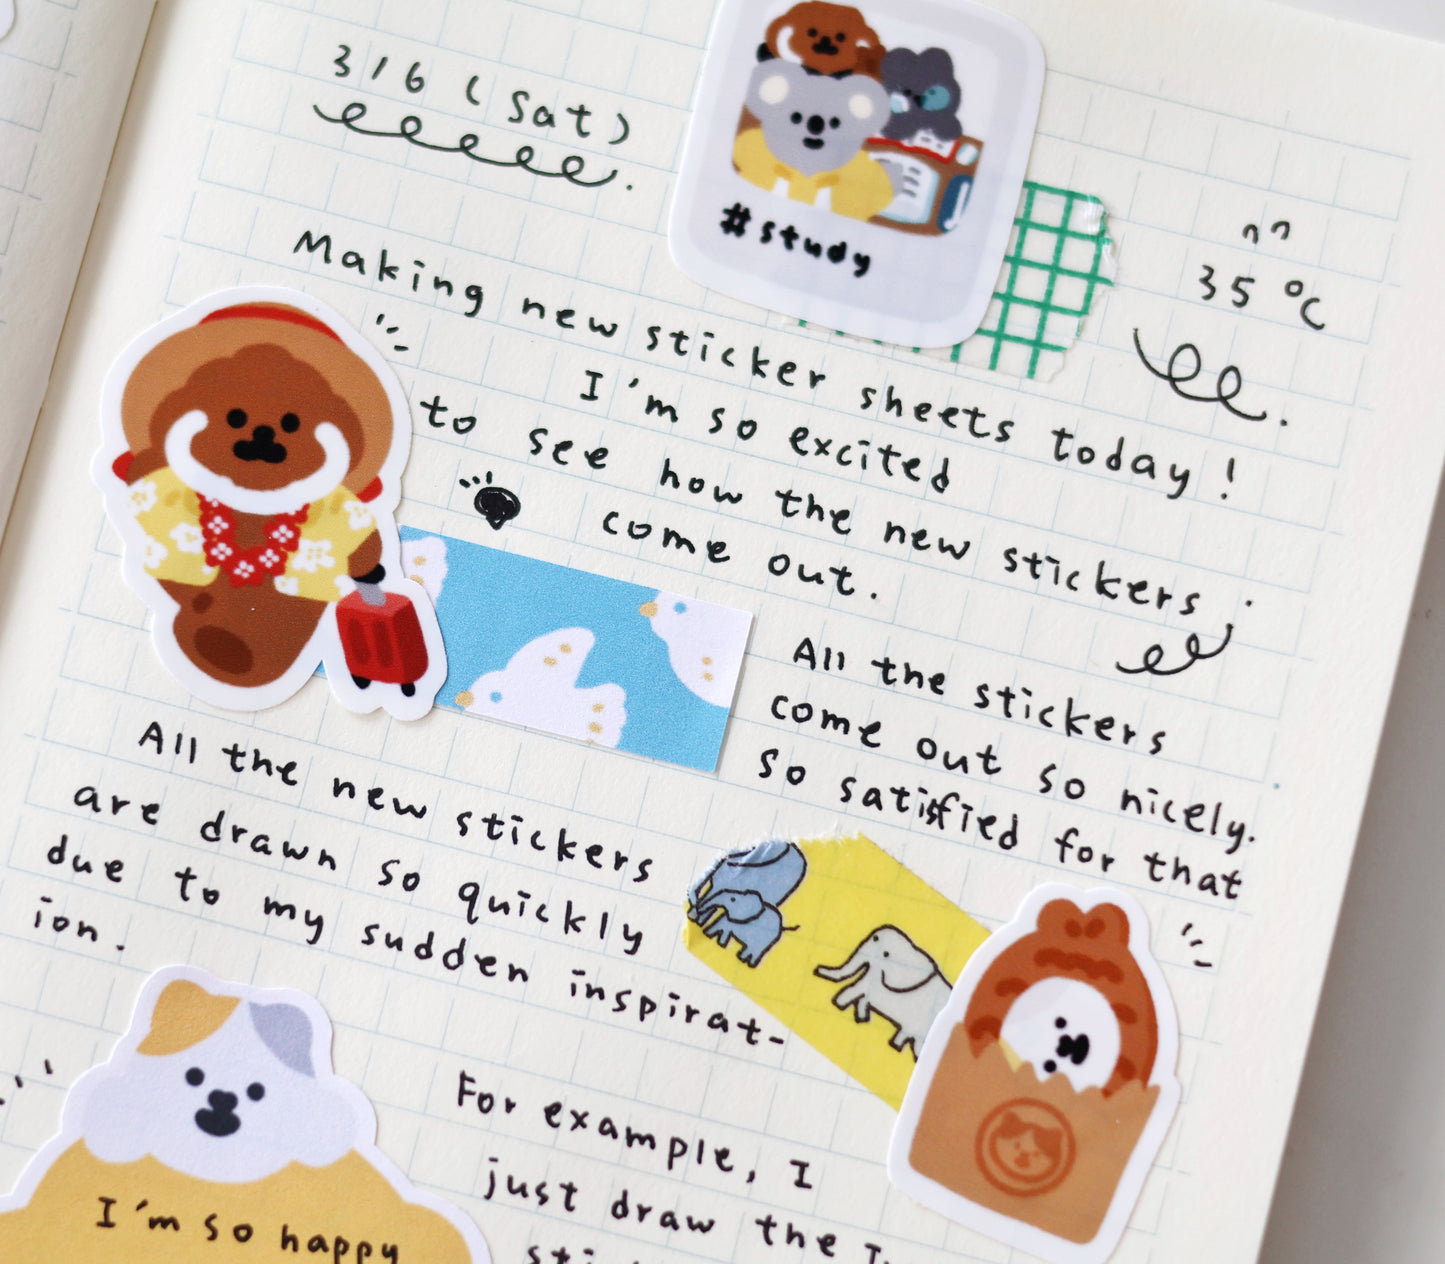 3/6 (Sat)
#study
35°C
Making new sticker sheets today!
I'm so excited
to see how the new stickers
come out.
All the stickers
come out so nicely.
so satisfied for that
All the new stickers
are drawn so quickly
due to my sudden inspirat-
ion.
For example, I
just draw the
I'm so happy